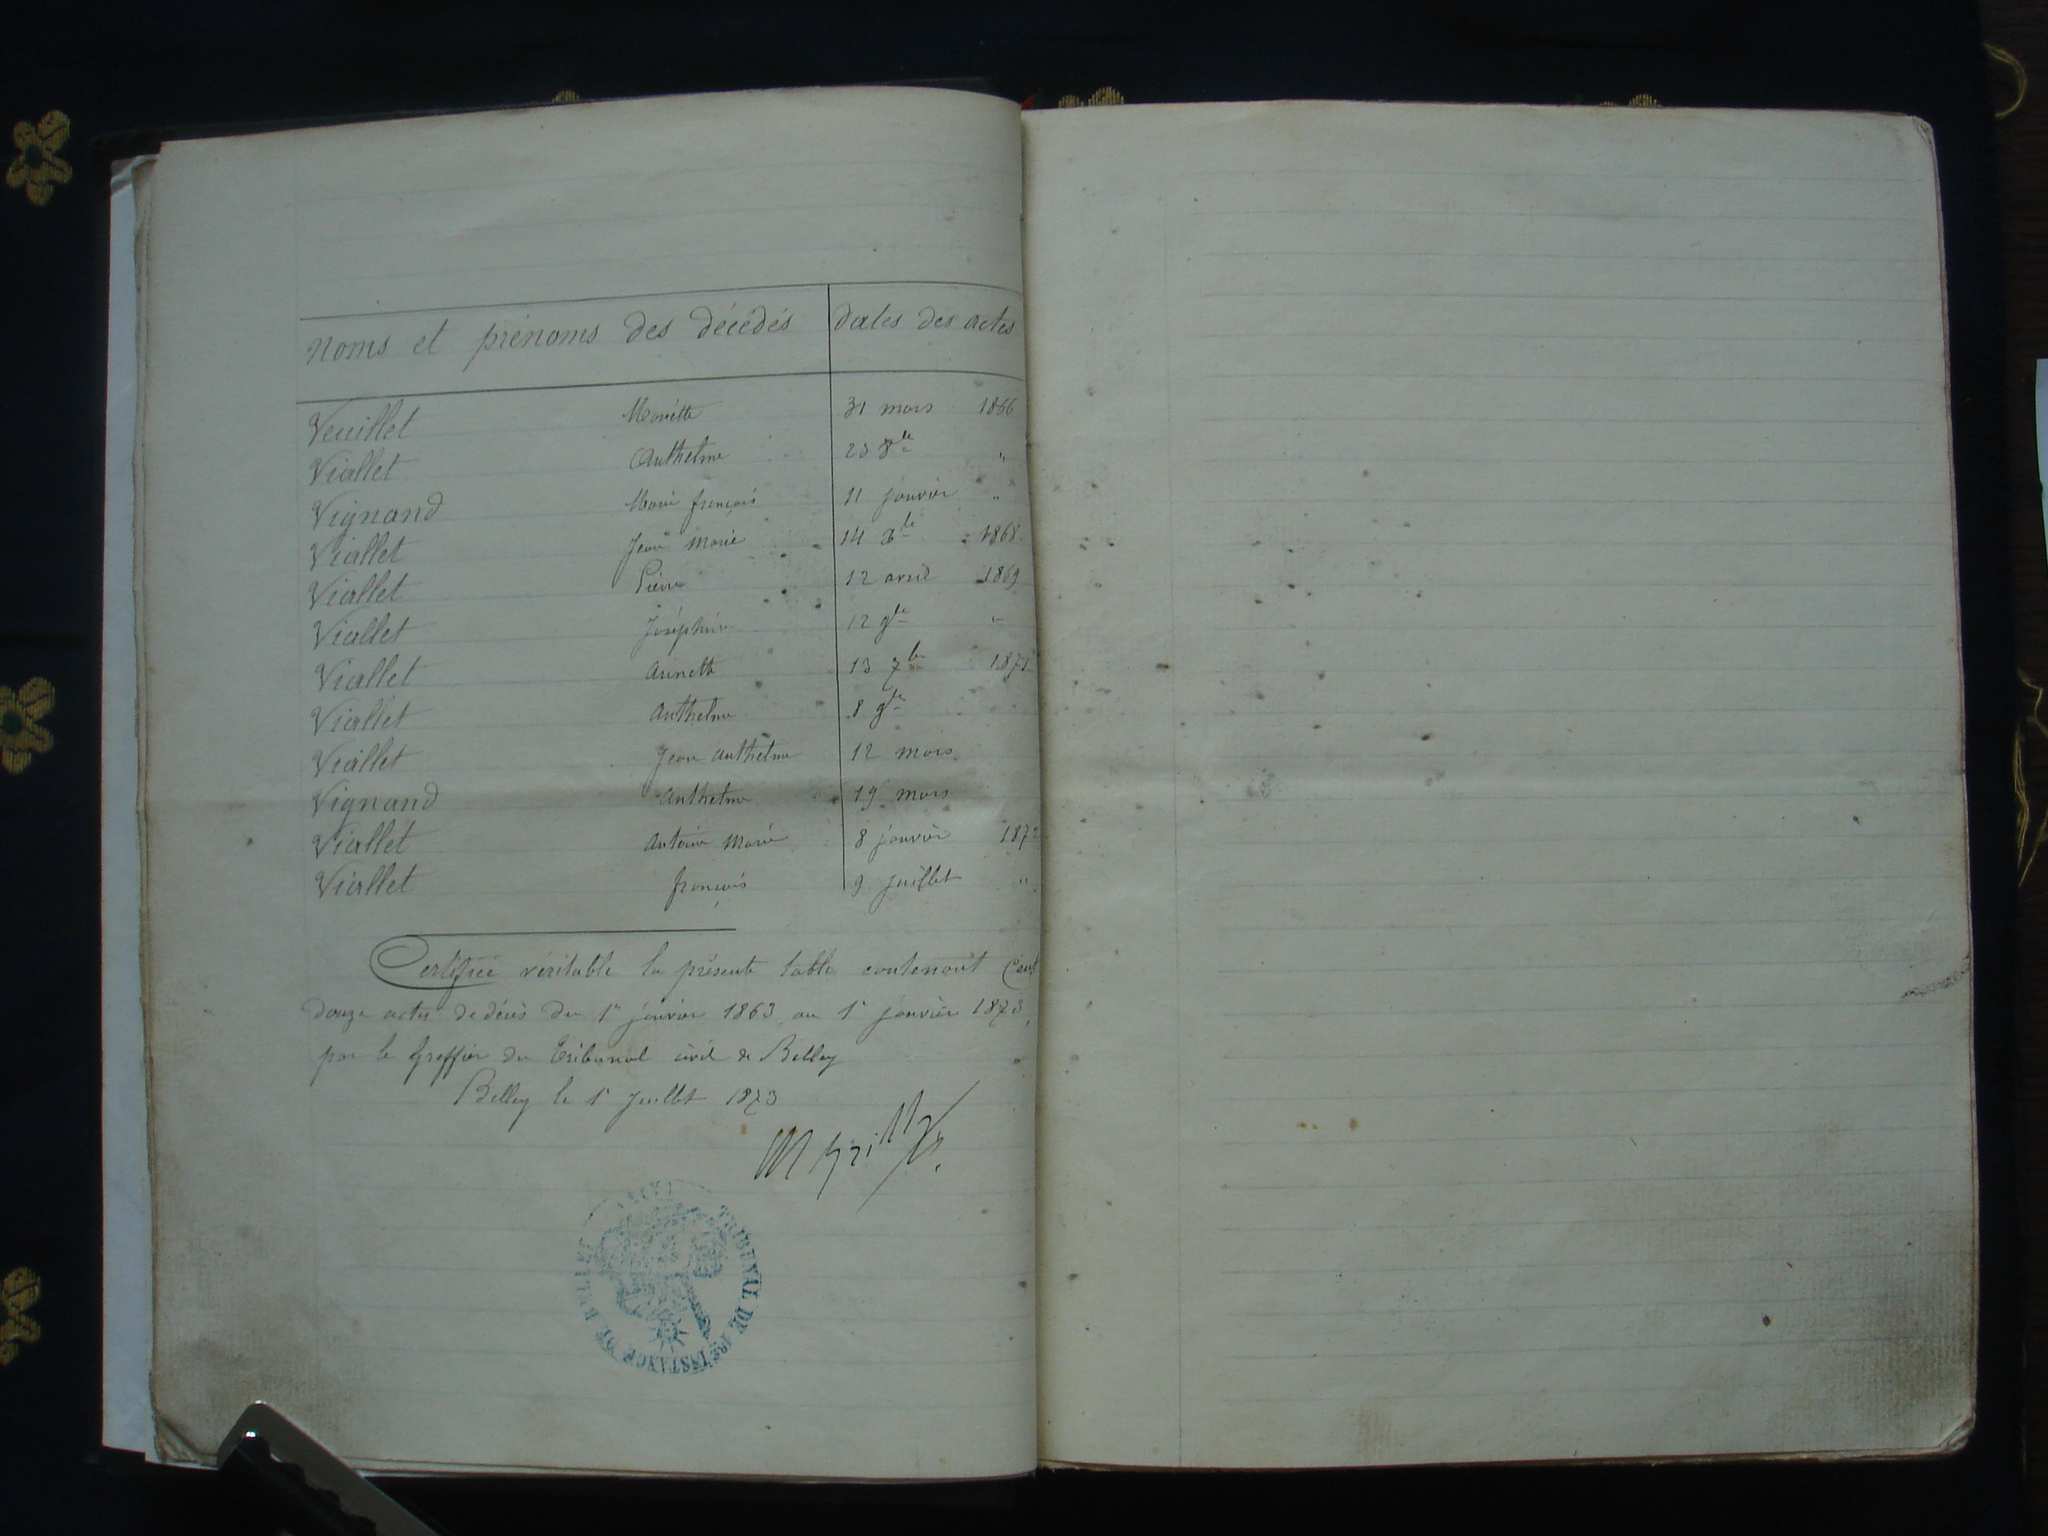 Noms et prénoms des décédés dates des actes
Veuillet Mariette 31 mars 1866
Viallet Anthelme 23 8bre "
Vignand Marie françois 11 janvier "
Viallet Jean Marie 14 xbre 1868
Viallet Pierre 12 avril 1869
Viallet Joséphine 12 9bre "
Viallet Annette 13 7bre 1871
Viallet Anthelme 8 9bre
Viallet Jean Anthelme 12 mars
Vignand Anthelme 19 mars
Viallet Antoine Marie 8 janvier 1872
Viallet françois 9 juillet "
Certifiée véritable la présente table contenant Cent
douze actes de décès du 1er janvier 1863 au 1er janvier 1873,
par le Greffier du Tribunal civil de Belley
Belley le 1er Juillet 1873
TRIBUNAL DE 1RE INSTANCE DE BELLEY